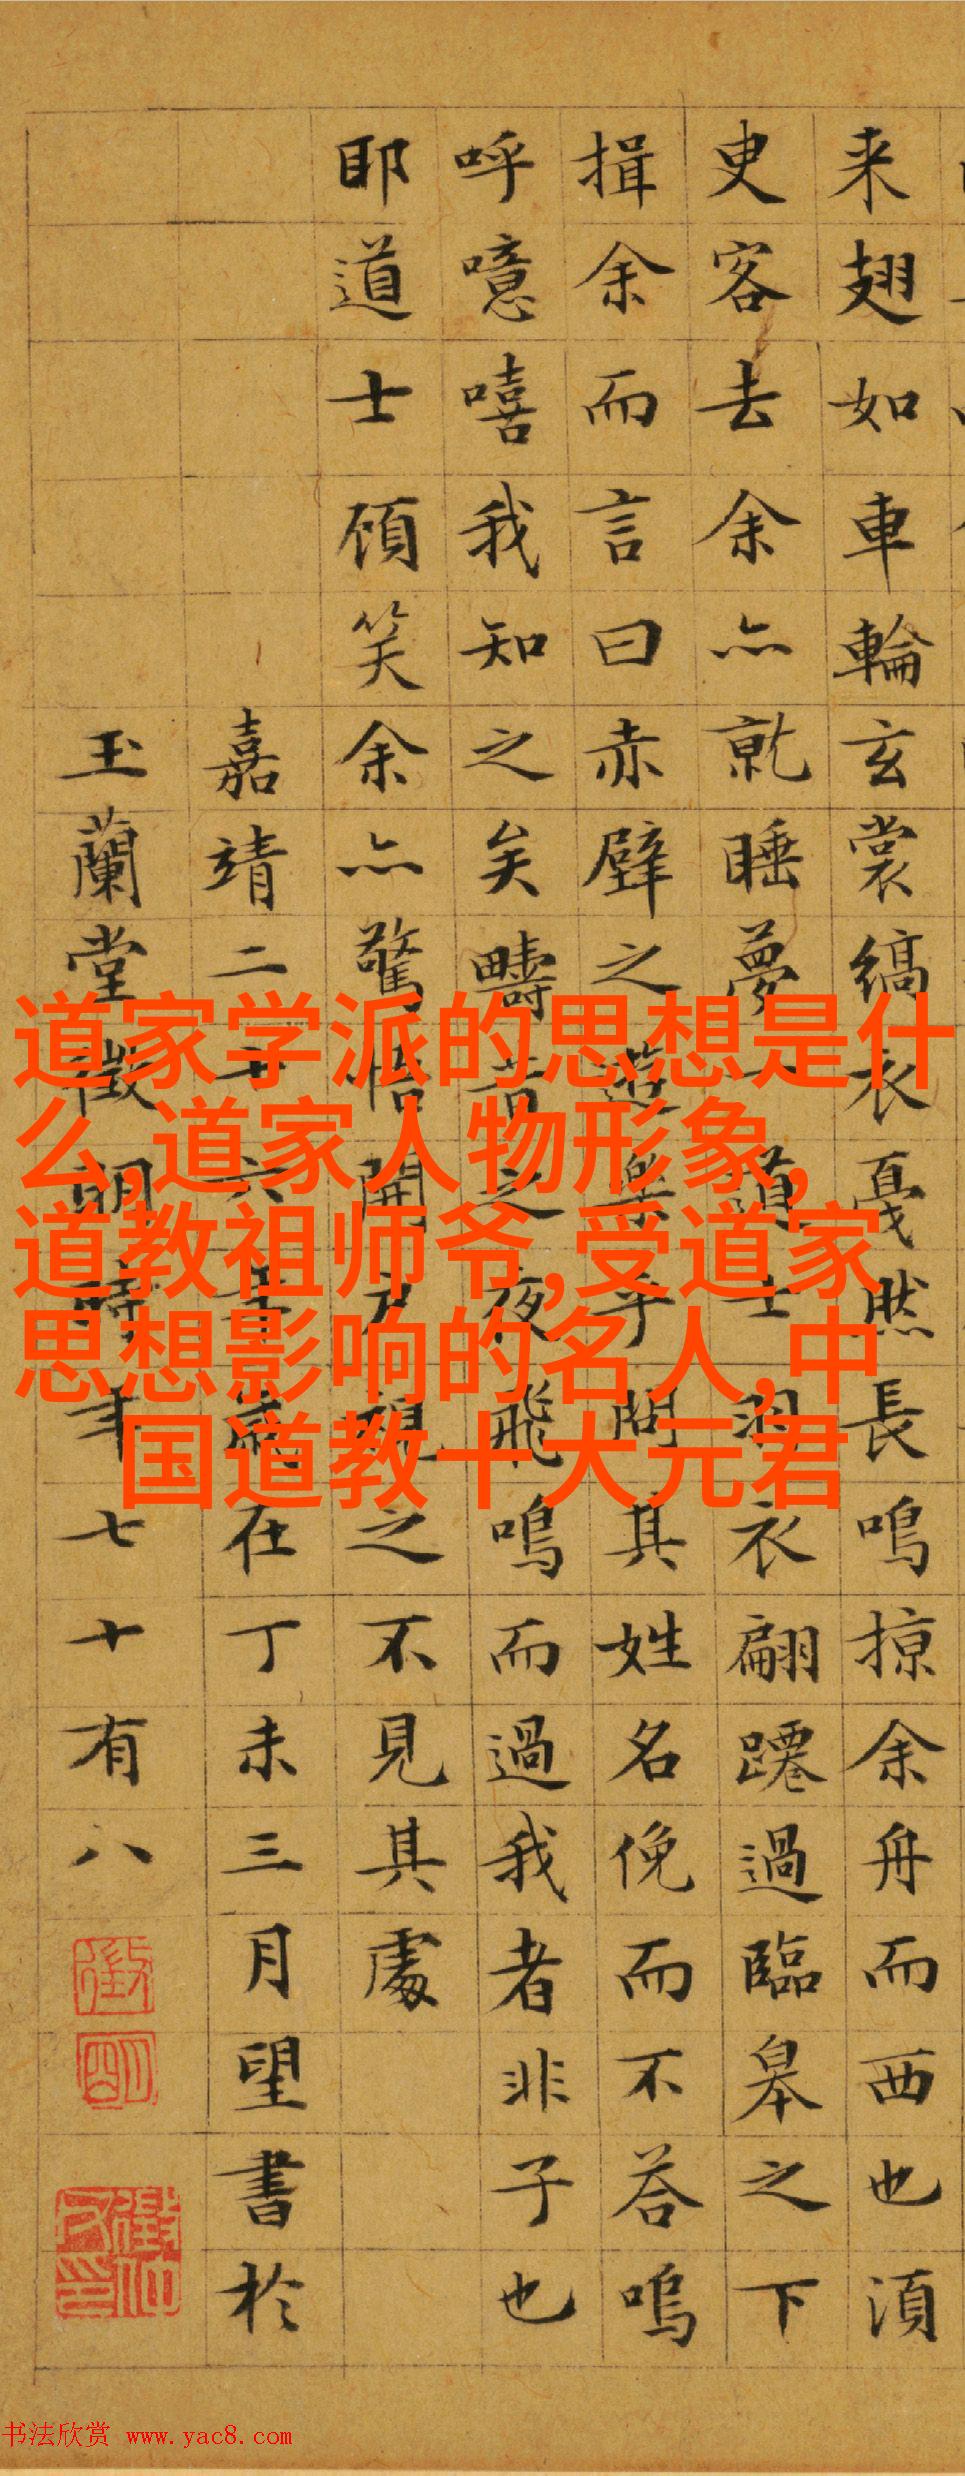 来翅如車輪玄裳縞衣戛然長鳴掠余舟而西也湏
臾客去余亦就睡夢一道士羽衣翩躚過臨皋之下
揖余而言曰赤壁之遊樂乎問其姓名俛而不荅嗚
呼噫嘻我知之矣疇昔之夜飛鳴而過我者非子也
耶道士顧笑余亦驚悟開户視之不見其處
嘉靖二十六年歲在丁未三月望書於
玉蘭堂徵明時年七十有八
道家学派的思想是什
么,道家人物形象,
道教祖师爷,受道家
思想影响的名人,中
国道教十大元君
书法欣赏 www.yac8.com